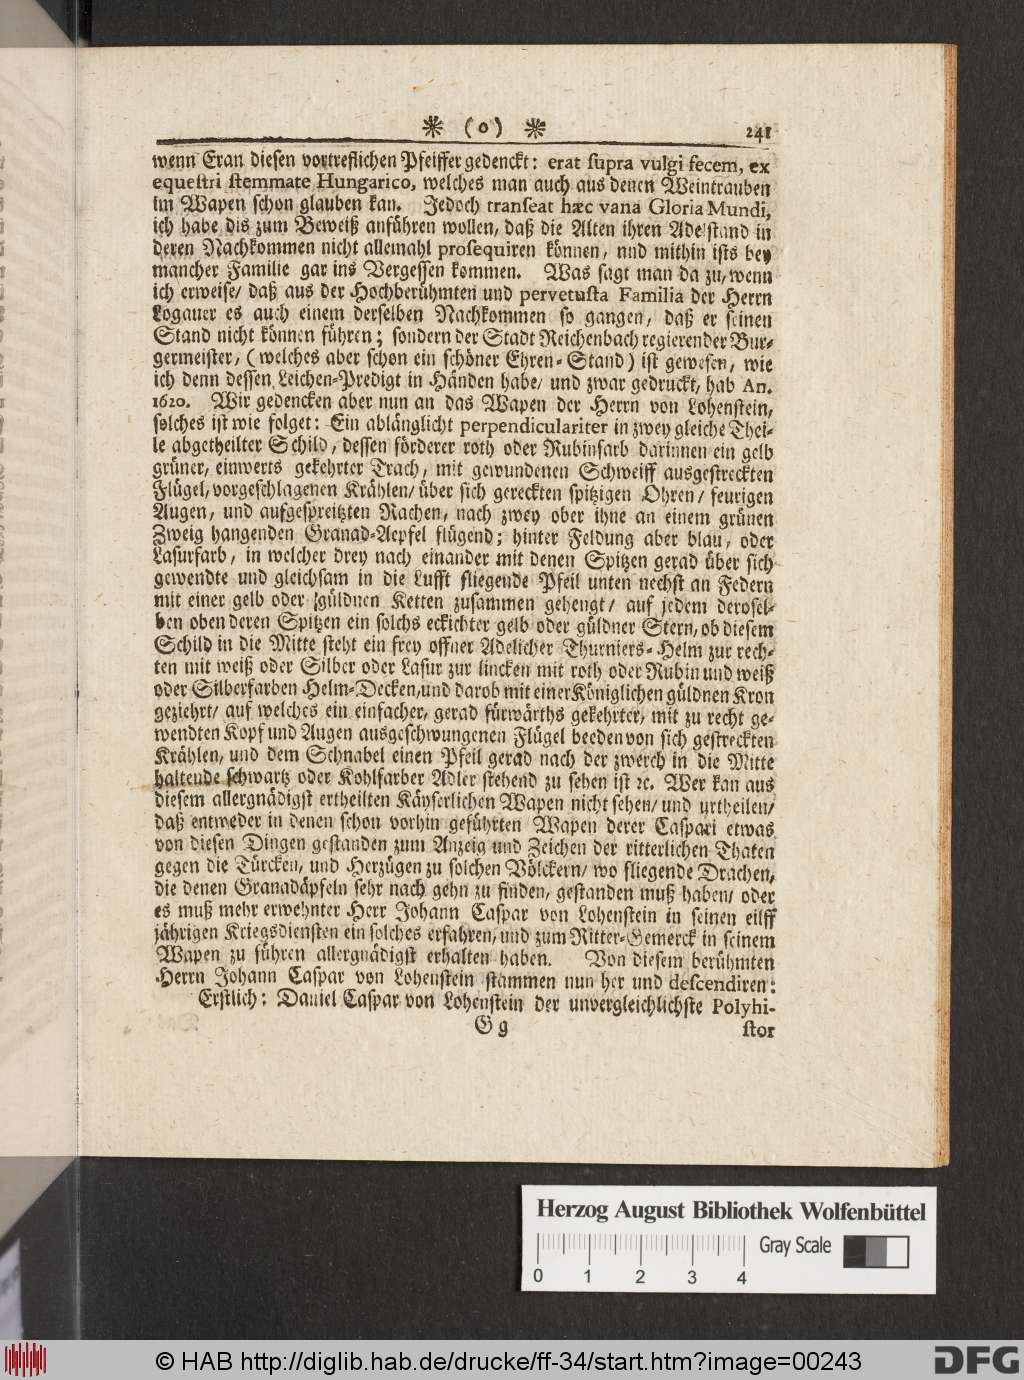 ❋ (o) ❋ 241
wenn Eran diesen vortreflichen Pfeiffer gedenckt: erat supra vulgi fecem, ex
equestri stemmate Hungarico, welches man auch aus denen Weintrauben
im Wapen schon glauben kan. Jedoch transeat hæc vana Gloria Mundi,
ich habe dis zum Beweiß anführen wollen, daß die Alten ihren Adelstand in
deren Nachkommen nicht allemahl prosequiren können, und mithin ists bey
mancher Familie gar ins Vergessen kommen. Was sagt man da zu, wenn
ich erweise/ daß aus der Hochberühmten und pervetusta Familia der Herrn
Logauer es auch einem derselben Nachkommen so gangen, daß er seinen
Stand nicht können führen; sondern der Stadt Reichenbach regierender Bur-
germeister, (welches aber schon ein schöner Ehren-Stand) ist gewesen, wie
ich denn dessen Leichen-Predigt in Händen habe/ und zwar gedruckt, hab An.
1620. Wir gedencken aber nun an das Wapen der Herrn von Lohenstein,
solches ist wie folget: Ein ablänglicht perpendiculariter in zwey gleiche Thei-
le abgetheilter Schild, dessen förderer roth oder Rubinfarb darinnen ein gelb
grüner, einwerts gekehrter Trach, mit gewundenen Schweiff ausgestreckten
Flügel, vorgeschlagenen Krählen/ über sich gereckten spitzigen Ohren/ feurigen
Augen, und aufgespreitzten Rachen, nach zwey ober ihne an einem grünen
Zweig hangenden Granad-Aepfel flügend; hinter Feldung aber blau, oder
Lasurfarb, in welcher drey nach einander mit denen Spitzen gerad über sich
gewendte und gleichsam in die Lufft fliegende Pfeil unten nechst an Federn
mit einer gelb oder güldnen Ketten zusammen gehengt/ auf jedem derosel-
ben oben deren Spitzen ein solchs eckichter gelb oder güldner Stern, ob diesem
Schild in die Mitte steht ein frey offner Adelicher Thurniers-Helm zur rech-
ten mit weiß oder Silber oder Lasur zur lincken mit roth oder Rubin und weiß
oder Silberfarben Helm-Decken, und darob mit einer Königlichen güldnen Kron
geziehrt/ auf welches ein einfacher, gerad fürwärths gekehrter, mit zu recht ge-
wendten Kopf und Augen ausgeschwungenen Flügel beeden von sich gestreckten
Krählen, und dem Schnabel einen Pfeil gerad nach der zwerch in die Mitte
haltende schwartz oder Kohlfarber Adler stehend zu sehen ist ꝛc. Wer kan aus
diesem allergnädigst ertheilten Käyserlichen Wapen nicht sehen/ und urtheilen/
daß entweder in denen schon vorhin geführten Wapen derer Caspari etwas
von diesen Dingen gestanden zum Anzeig und Zeichen der ritterlichen Thaten
gegen die Türcken, und Herzügen zu solchen Völckern/ wo fliegende Drachen,
die denen Granadäpfeln sehr nach gehn zu finden, gestanden muß haben/ oder
es muß mehr erwehnter Herr Johann Caspar von Lohenstein in seinen eilff
jährigen Kriegsdiensten ein solches erfahren, und zum Ritter-Gemerck in seinem
Wapen zu führen allergnädigst erhalten haben. Von diesem berühmten
Herrn Johann Caspar von Lohenstein stammen nun her und descendiren:
Erstlich: Daniel Caspar von Lohenstein der unvergleichlichste Polyhi-
G g stor
Herzog August Bibliothek Wolfenbüttel
Gray Scale
0 1 2 3 4
© HAB http://diglib.hab.de/drucke/ff-34/start.htm?image=00243
DFG